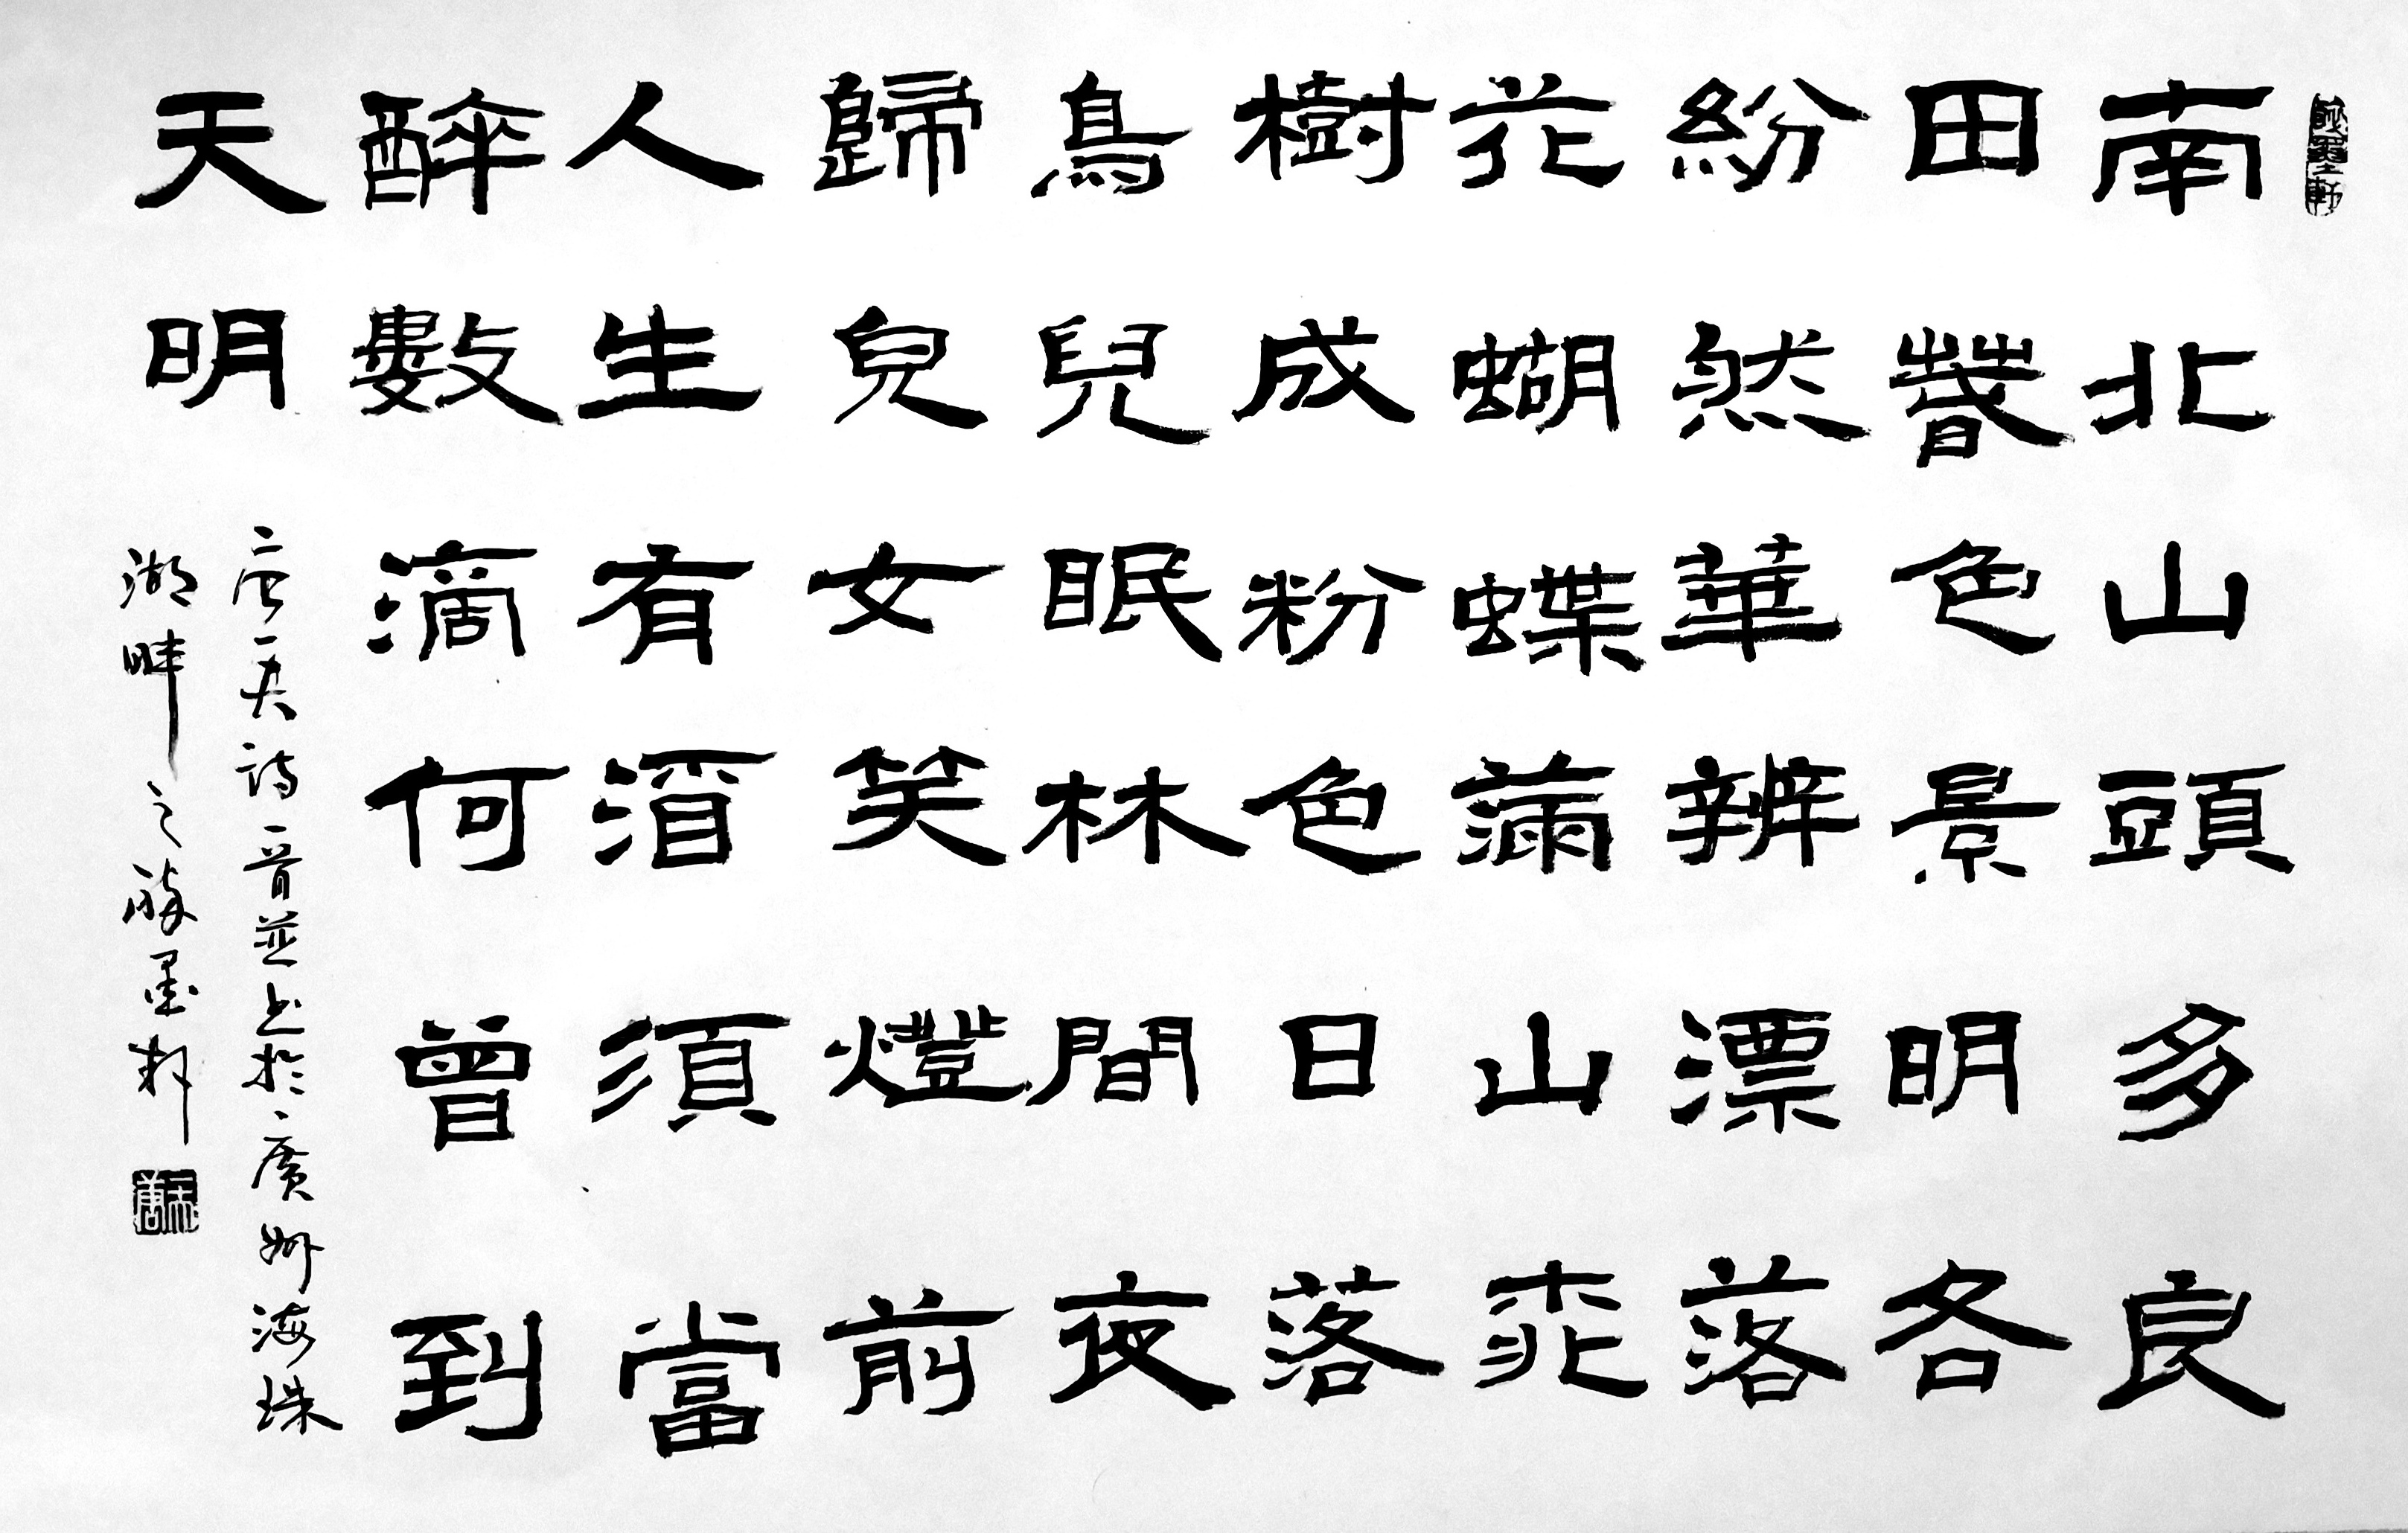 南北山頭多良
田春色景明各
紛然華辨漂落
花蝴蝶滿山桃
樹成粉色日落
鳥兒眠林間夜
歸兒女笑燈前
人生有酒須當
醉數滴何曾到
天明
唐詩一首並書於廣州海珠
湖畔之墨軒